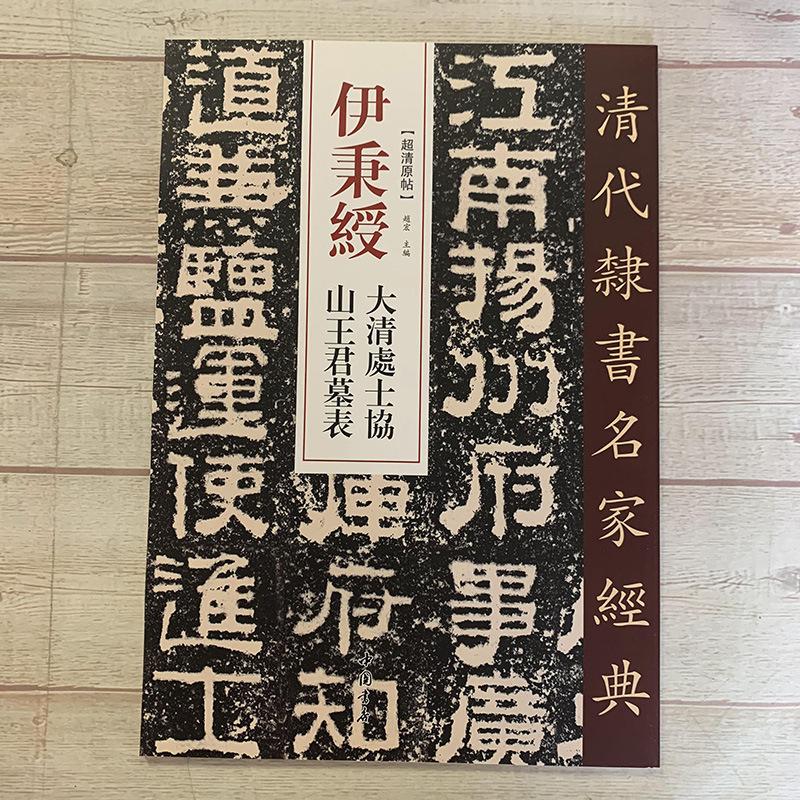 清代隸書名家經典
【超清原帖】
趙宏 主編
伊秉綬
大清處士協
山王君墓表
江南揚州府事廣
庫府知
道兼鹽運使進士
中国书店